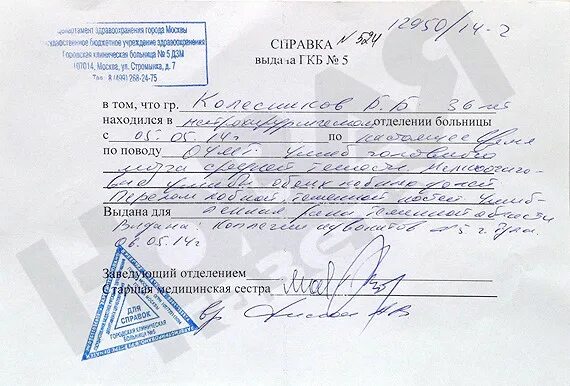 Департамент здравоохранения города Москвы
Государственное бюджетное учреждение здравоохранения
Городская клиническая больница № 5 ДЗМ
107014, Москва, ул. Стромынка, д. 7
Тел. 8(499)268-24-75
12950/14-2
СПРАВКА № 524
выдана ГКБ № 5
в том, что гр. Колесников Б.Б 36 лет
находился в нейрохирургическом отделении больницы
с 05.05.14г по настоящее время
по поводу ОЧМТ Ушиб головного
мозга средней тяжести
ушибы обеих лобных долей
Перелом лобной, теменной костей Ушиб-
Выдана для ленная рана теменной области
Выдана: Коллегии адвокатов №5 г. Тула
06.05.14г
Заведующий отделением
Старшая медицинская сестра
ДЛЯ
СПРАВОК
ГОРОДСКАЯ КЛИНИЧЕСКАЯ
БОЛЬНИЦА №5